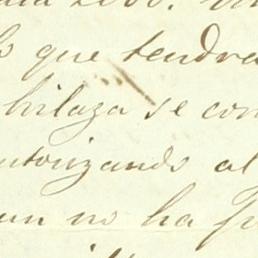 que tendra
hilaza se con
utorizando al
un no ha